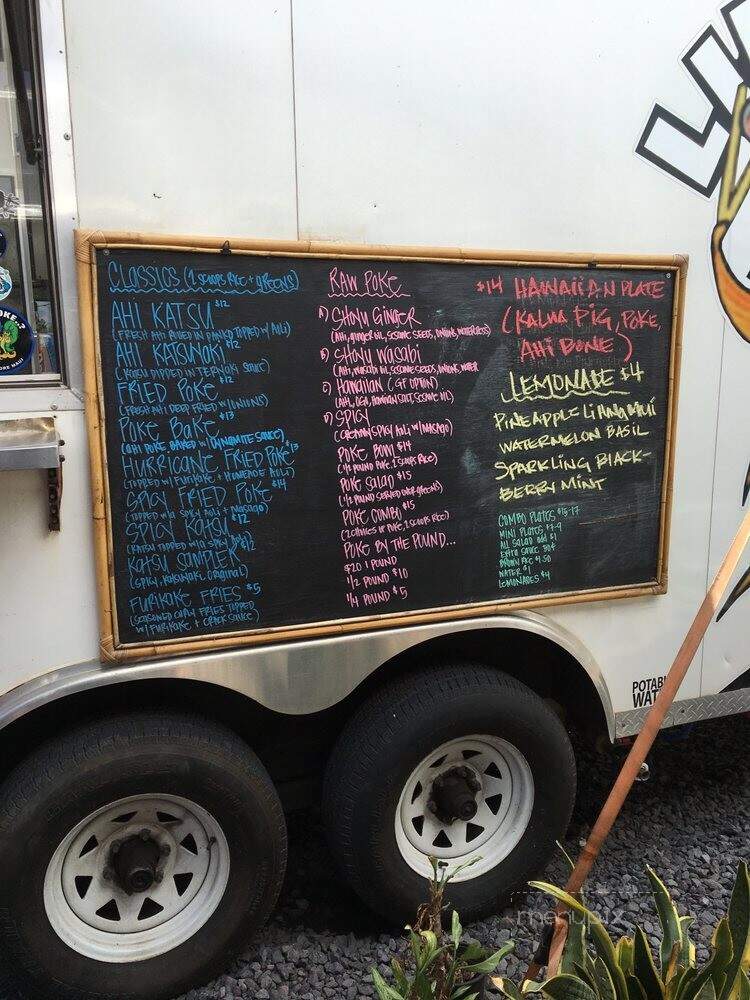 CLASSICS (2 SCOOPS RICE + GREENS)
AHI KATSU $12
(FRESH AHI ROLLED IN PANKO TOPPED W/ AILI)
AHI KATSUNOKI $12
(KATSU DIPPED IN TERIYAKI SAUCE)
FRIED POKE $12
(FRESH AHI DEEP FRIED W/ONIONS)
POKE BAKE $13
(AHI POKE BAKED W/ DYNAMITE SAUCE)
HURRICANE FRIED POKE $13
(TOPPED W/ FURIKAKE + HOMEMADE AILI)
SPICY FRIED POKE $14
(TOPPED W/ SPICY AILI + MASAGO)
SPICY KATSU $12
(KATSU TOPPED W/
KATSU SAMPLER $12
(SPICY, KATSUNOKI, ORIGINAL)
FURIKAKE FRIES $5
(SEASONED CURLY FRIES TOPPED
W/ FURIKAKE + CRACK SAUCE)
RAW POKE
1) SHOYU GINGER
(AHI, GINGER OIL, SESAME SEEDS, ONIONS, WATERCRESS)
2) SHOYU WASABI
(AHI, WASABI OIL, SESAME SEEDS, ONIONS, WATER
3) HAWAIIAN (GF OPTION)
(AHI, OGO, HAWAIIAN SALT, SESAME OIL)
4) SPICY
(CREAMY SPICY AILI W/ MASAGO)
POKE BOWL $14
(1/2 POUND POKE, 2 SCOOPS RICE)
POKE SALAD $15
(1/2 POUND SERVED OVER GREENS)
POKE COMBO $15
(2 CHOICES OF POKE, 2 SCOOPS RICE)
POKE BY THE POUND...
$20 1 POUND
1/2 POUND $10
1/4 POUND $5
$14 HAWAIIAN PLATE
(KALUA PIG, POKE,
AHI BONE)
LEMONADE $4
PINEAPPLE LI HING MUI
WATERMELON BASIL
SPARKLING BLACK-
BERRY MINT
COMBO PLATES $15-17
MINI PLATES $7-9
ALL SALAD ADD $1
EXTRA SAUCE 50¢
BROWN RICE $1.50
WATER $1
LEMONADES $4
POTABL
WAT
menupix